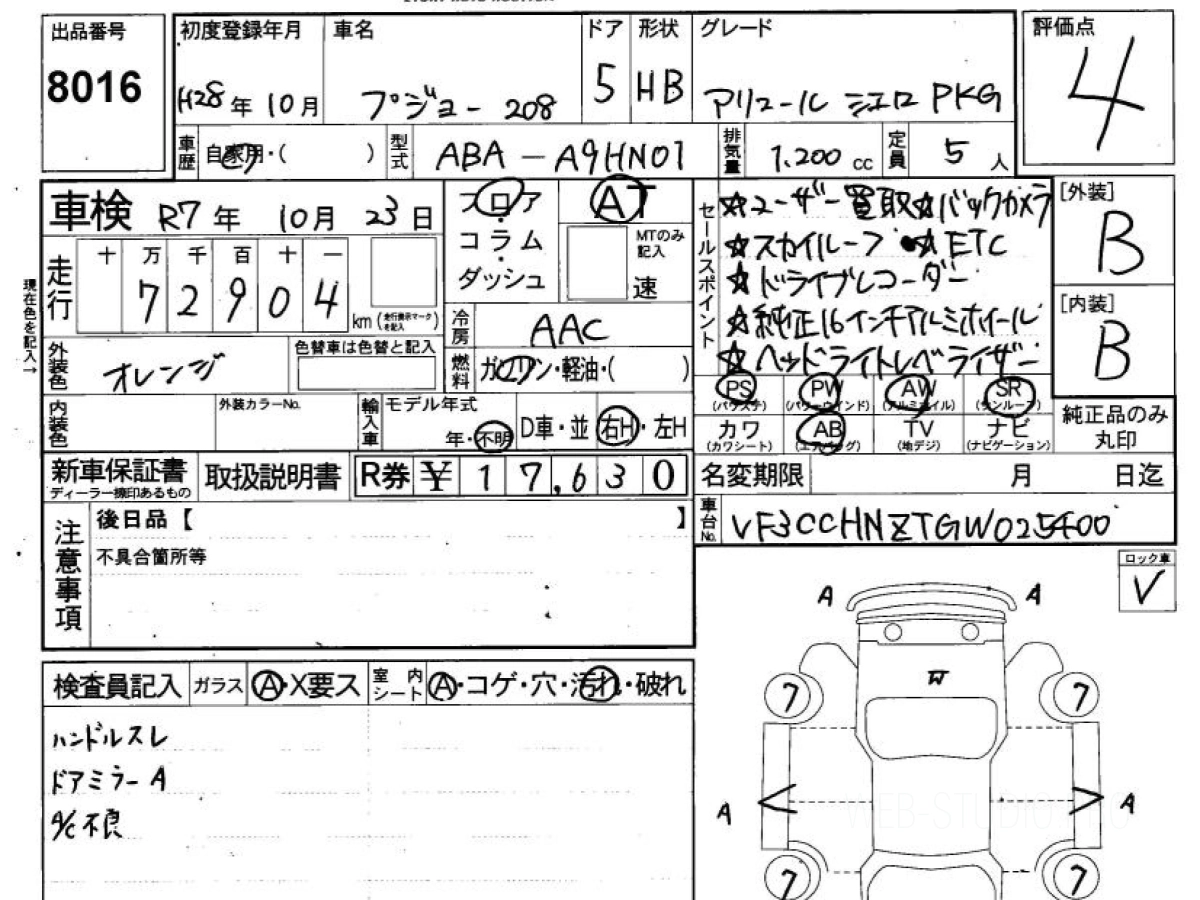 出品番号
8016
初度登録年月
H28年10月
車名
プジョー 208
ドア
5
形状
HB
グレード
アリュール シエロ PKG
評価点
4
車歴
自家用・( )
型式
ABA-A9HN01
排気量
1.200cc
定員
5人
車検 R7年 10月 23日
フロア・コラム・ダッシュ
AT
MTのみ記入
速
セールスポイント
☆ユーザー買取☆バックカメラ
☆スカイルーフ ☆ETC
☆ドライブレコーダー
☆純正16インチアルミホイール
☆ヘッドライトレベライザー
[外装]
B
[内装]
B
現在色を記入→
走行
十 万 千 百 十 一
7 2 9 0 4
km(走行換示マークを記入)
冷房
AAC
外装色
オレンジ
色替車は色替と記入
燃料
ガソリン・軽油・( )
PS PW AW SR
(パワステ) (パワーウインド) (アルミホイル) (サンルーフ)
カワ AB TV ナビ
(カワシート) (エアバッグ) (地デジ) (ナビゲーション)
純正品のみ丸印
内装色
外装カラーNo.
輸入車
モデル年式
年・不明
D車・並
右H・左H
新車保証書
ディーラー捺印あるもの
取扱説明書
R券 ¥ 17,630
名変期限 月 日迄
車台No.
VF3CCHNZTGW025400
注意事項
後日品【 】
不具合箇所等
ロック車
V
検査員記入
ガラス
A・X要ス
室内シート
A・コゲ・穴・汚れ・破れ
ハンドルスレ
ドアミラーA
A/C不良
A A
7 7
A A
7 7
WEB-STUDIO.PRO